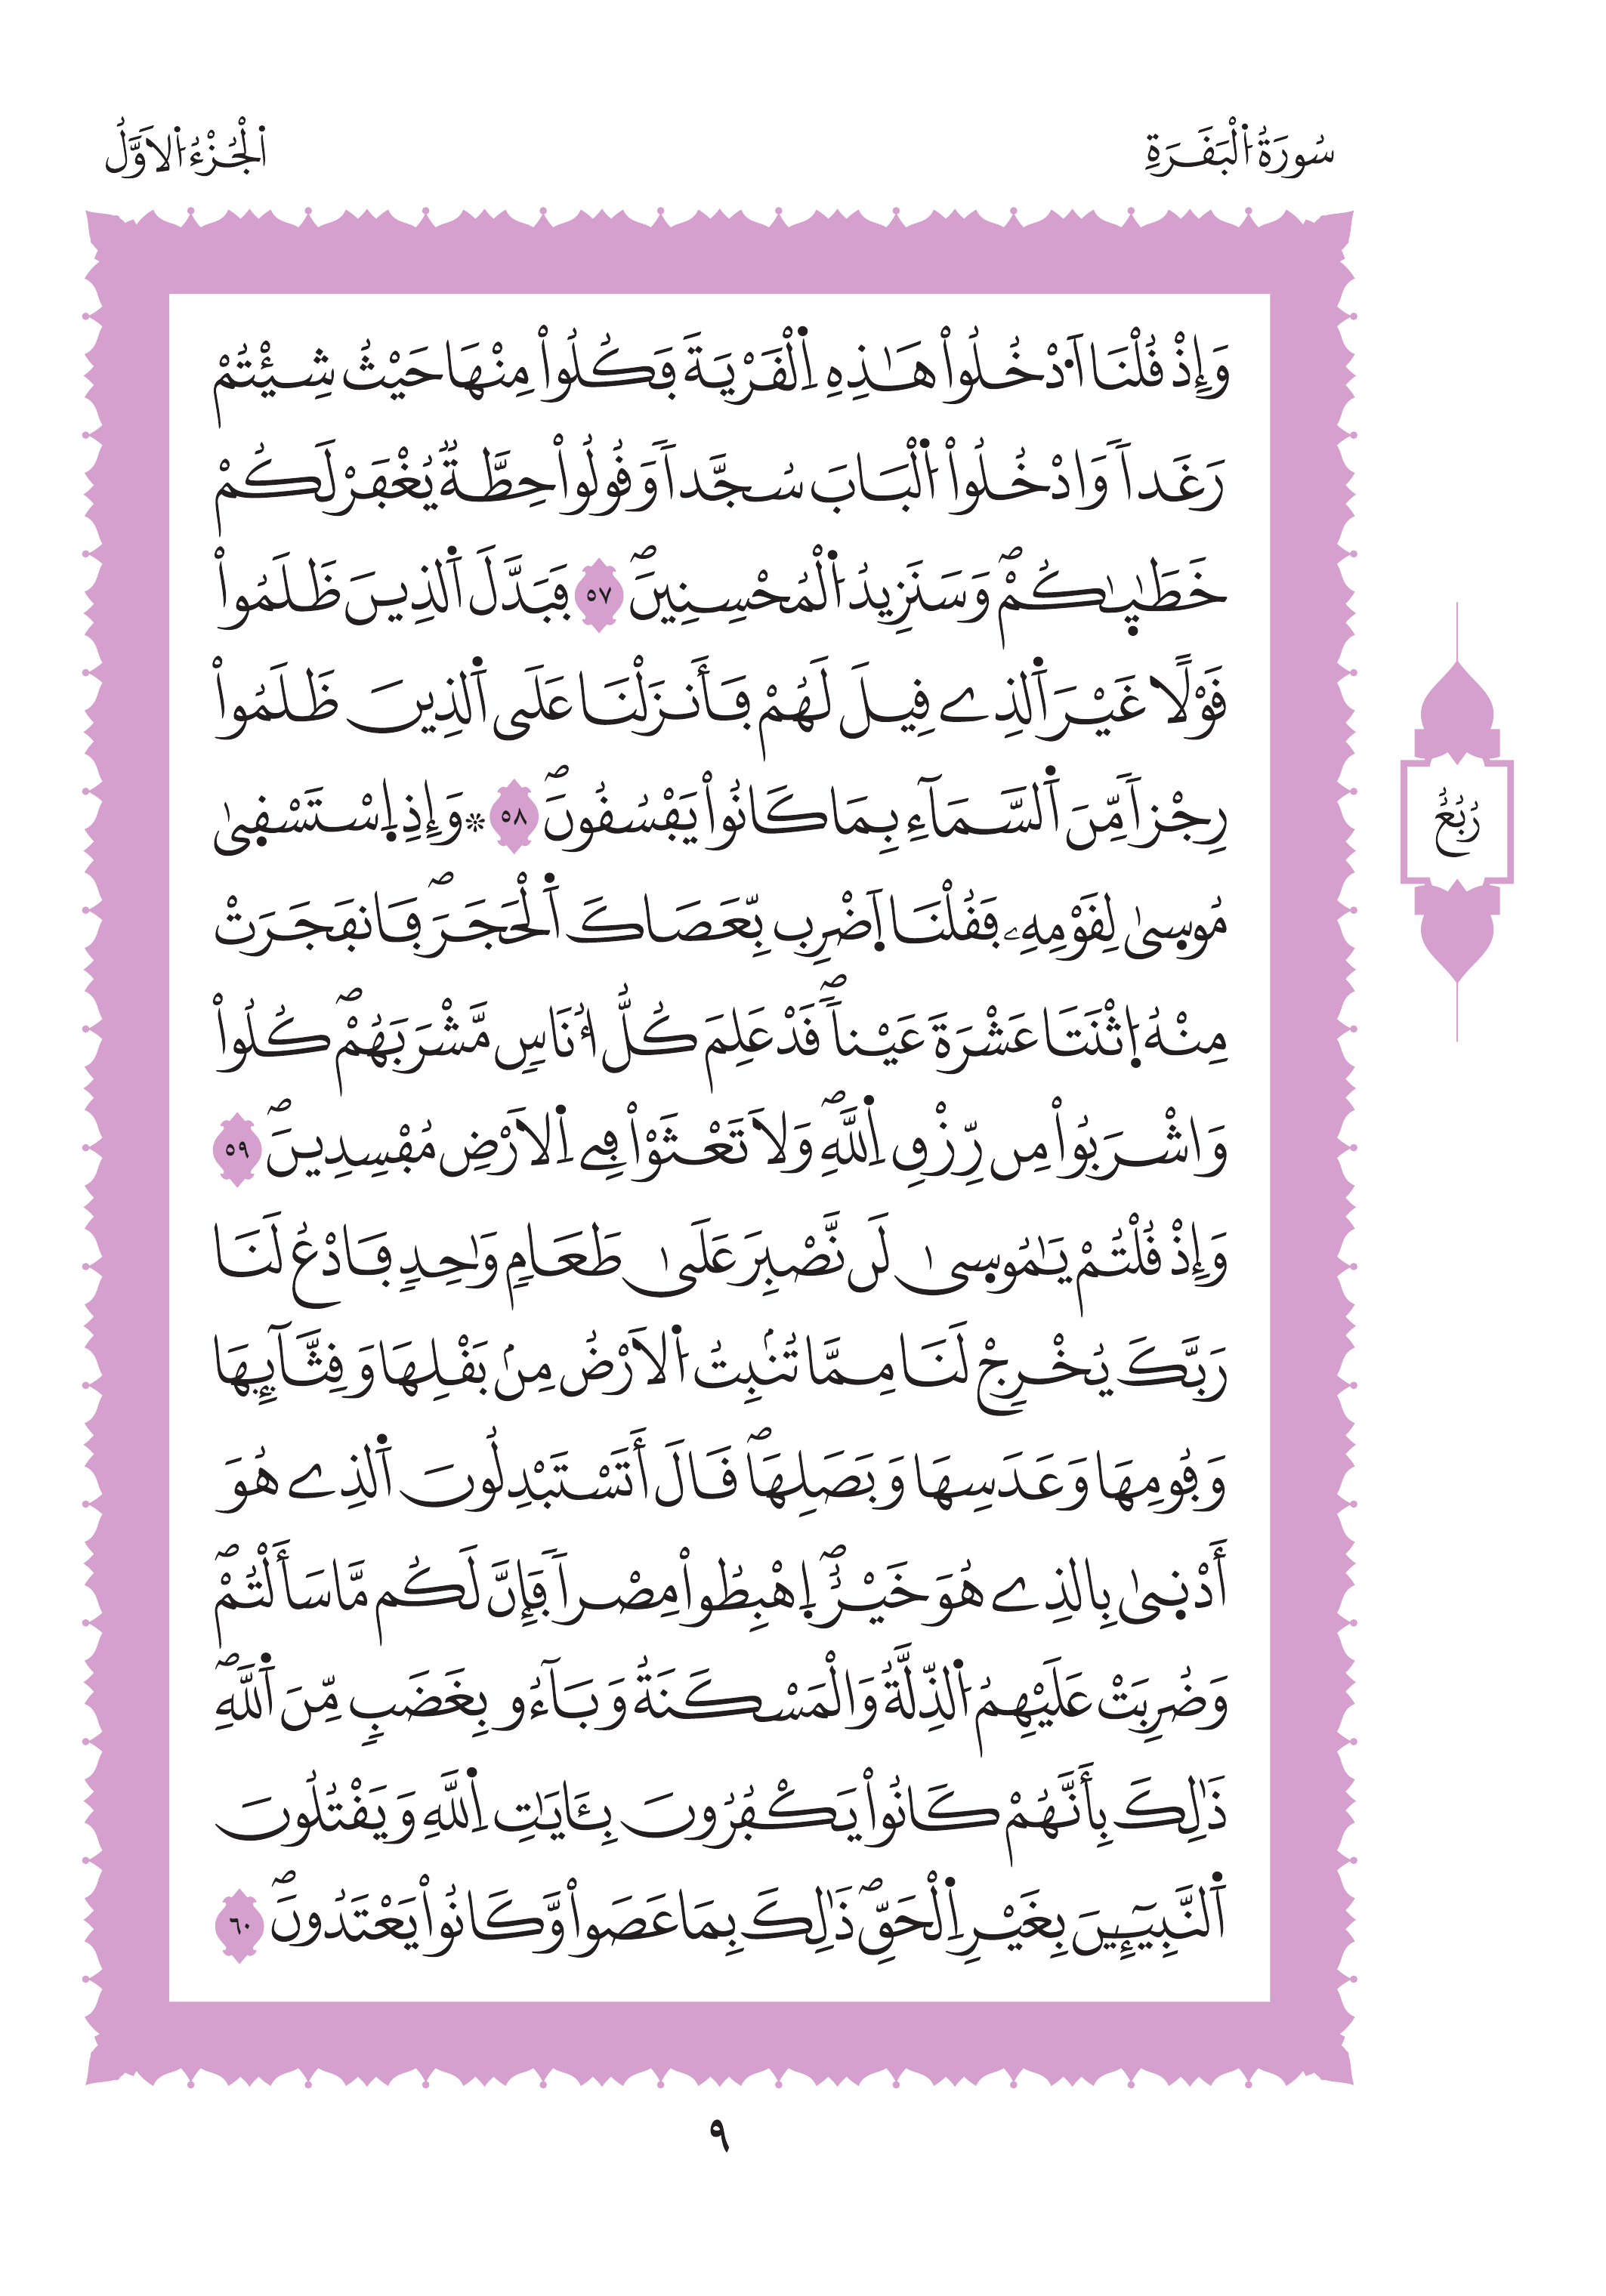 سُورَةُ اُ۬لْبَقَرَةِ
اُ۬لْجُزْءُ اُ۬لَاوَّلُ
وَإِذْ قُلْنَا اَ۟دْخُلُواْ هَٰذِهِ اِ۬لْقَرْيَةَ فَكُلُواْ مِنْهَا حَيْثُ شِئْتُمْ
رَغَداٗ وَادْخُلُواْ اُ۬لْبَابَ سُجَّداٗ وَقُولُواْ حِطَّةٞ يُغْفَرْ لَكُمْ
خَطَٰيٰكُمْۖ وَسَنَزِيدُ اُ۬لْمُحْسِنِينَۖ ٥٧ فَبَدَّلَ اَ۬لذِينَ ظَلَمُواْ
قَوْلًا غَيْرَ اَ۬لذِے قِيلَ لَهُمْ فَأَنزَلْنَا عَلَى اَ۬لذِينَ ظَلَمُواْ
رِجْزاٗ مِّنَ اَ۬لسَّمَآءِ بِمَا كَانُواْ يَفْسُقُونَۖ ٥٨ ۞ وَإِذِ اِ۪سْتَسْقٜىٰ
مُوسٜىٰ لِقَوْمِهِۦ فَقُلْنَا اَ۪ضْرِب بِّعَصَاكَ اَ۬لْحَجَرَۖ فَانفَجَرَتْ
مِنْهُ اُ۪ثْنَتَا عَشْرَةَ عَيْناٗۖ قَدْ عَلِمَ كُلُّ أُنَاسٖ مَّشْرَبَهُمْۖ كُلُواْ
وَاشْرَبُواْ مِن رِّزْقِ اِ۬للَّهِۖ وَلَا تَعْثَوْاْ فِے اِ۬لَارْضِ مُفْسِدِينَۖ ٥٩
وَإِذْ قُلْتُمْ يَٰمُوسٜىٰ لَن نَّصْبِرَ عَلَىٰ طَعَامٖ وَٰحِدٖ فَادْعُ لَنَا
رَبَّكَ يُخْرِجْ لَنَا مِمَّا تُنۢبِتُ اُ۬لَارْضُ مِنۢ بَقْلِهَا وَقِثَّآئِهَا
وَفُومِهَا وَعَدَسِهَا وَبَصَلِهَاۖ قَالَ أَتَسْتَبْدِلُونَ اَ۬لذِے هُوَ
أَدْنٜىٰ بِالذِے هُوَ خَيْرٌۖ اِ۪هْبِطُواْ مِصْراٗ فَإِنَّ لَكُم مَّا سَأَلْتُمْۖ
وَضُرِبَتْ عَلَيْهِمُ اُ۬لذِّلَّةُ وَالْمَسْكَنَةُ وَبَآءُو بِغَضَبٖ مِّنَ اَ۬للَّهِۖ
ذَٰلِكَ بِأَنَّهُمْ كَانُواْ يَكْفُرُونَ بِـَٔايَٰتِ اِ۬للَّهِ وَيَقْتُلُونَ
اَ۬لنَّبِيٓـِٕينَ بِغَيْرِ اِ۬لْحَقِّۖ ذَٰلِكَ بِمَا عَصَواْ وَّكَانُواْ يَعْتَدُونَۖ ٦٠
رُبُعُ
٩